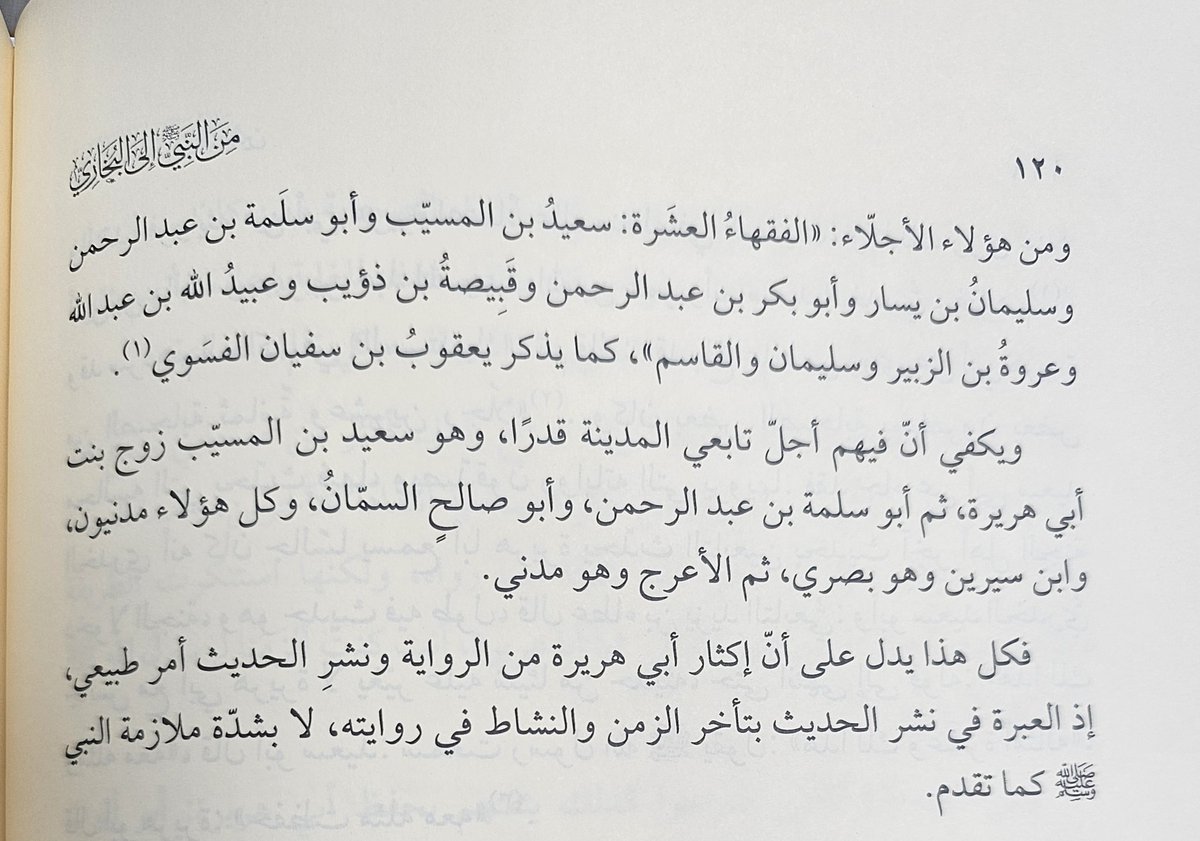 ١٢٠
مِنَ النَّبِيِّ ﷺ إِلَى البُخَارِيِّ
ومن هؤلاء الأجلّاء: «الفقهاءُ العشَرة: سعيدُ بن المسيّب وأبو سلَمة بن عبد الرحمن
وسليمانُ بن يسار وأبو بكر بن عبد الرحمن وقَبِيصةُ بن ذؤيب وعبيدُ الله بن عبد الله
وعروةُ بن الزبير وسليمان والقاسم»، كما يذكر يعقوبُ بن سفيان الفسَوي(١).
ويكفي أنّ فيهم أجلّ تابعي المدينة قدرًا، وهو سعيد بن المسيّب زوج بنت
أبي هريرة، ثم أبو سلمة بن عبد الرحمن، وأبو صالحٍ السمّانُ، وكل هؤلاء مدنيون،
وابن سيرين وهو بصري، ثم الأعرج وهو مدني.
فكل هذا يدل على أنّ إكثار أبي هريرة من الرواية ونشرِ الحديث أمر طبيعي،
إذ العبرة في نشر الحديث بتأخر الزمن والنشاط في روايته، لا بشدّة ملازمة النبي
ﷺ كما تقدم.